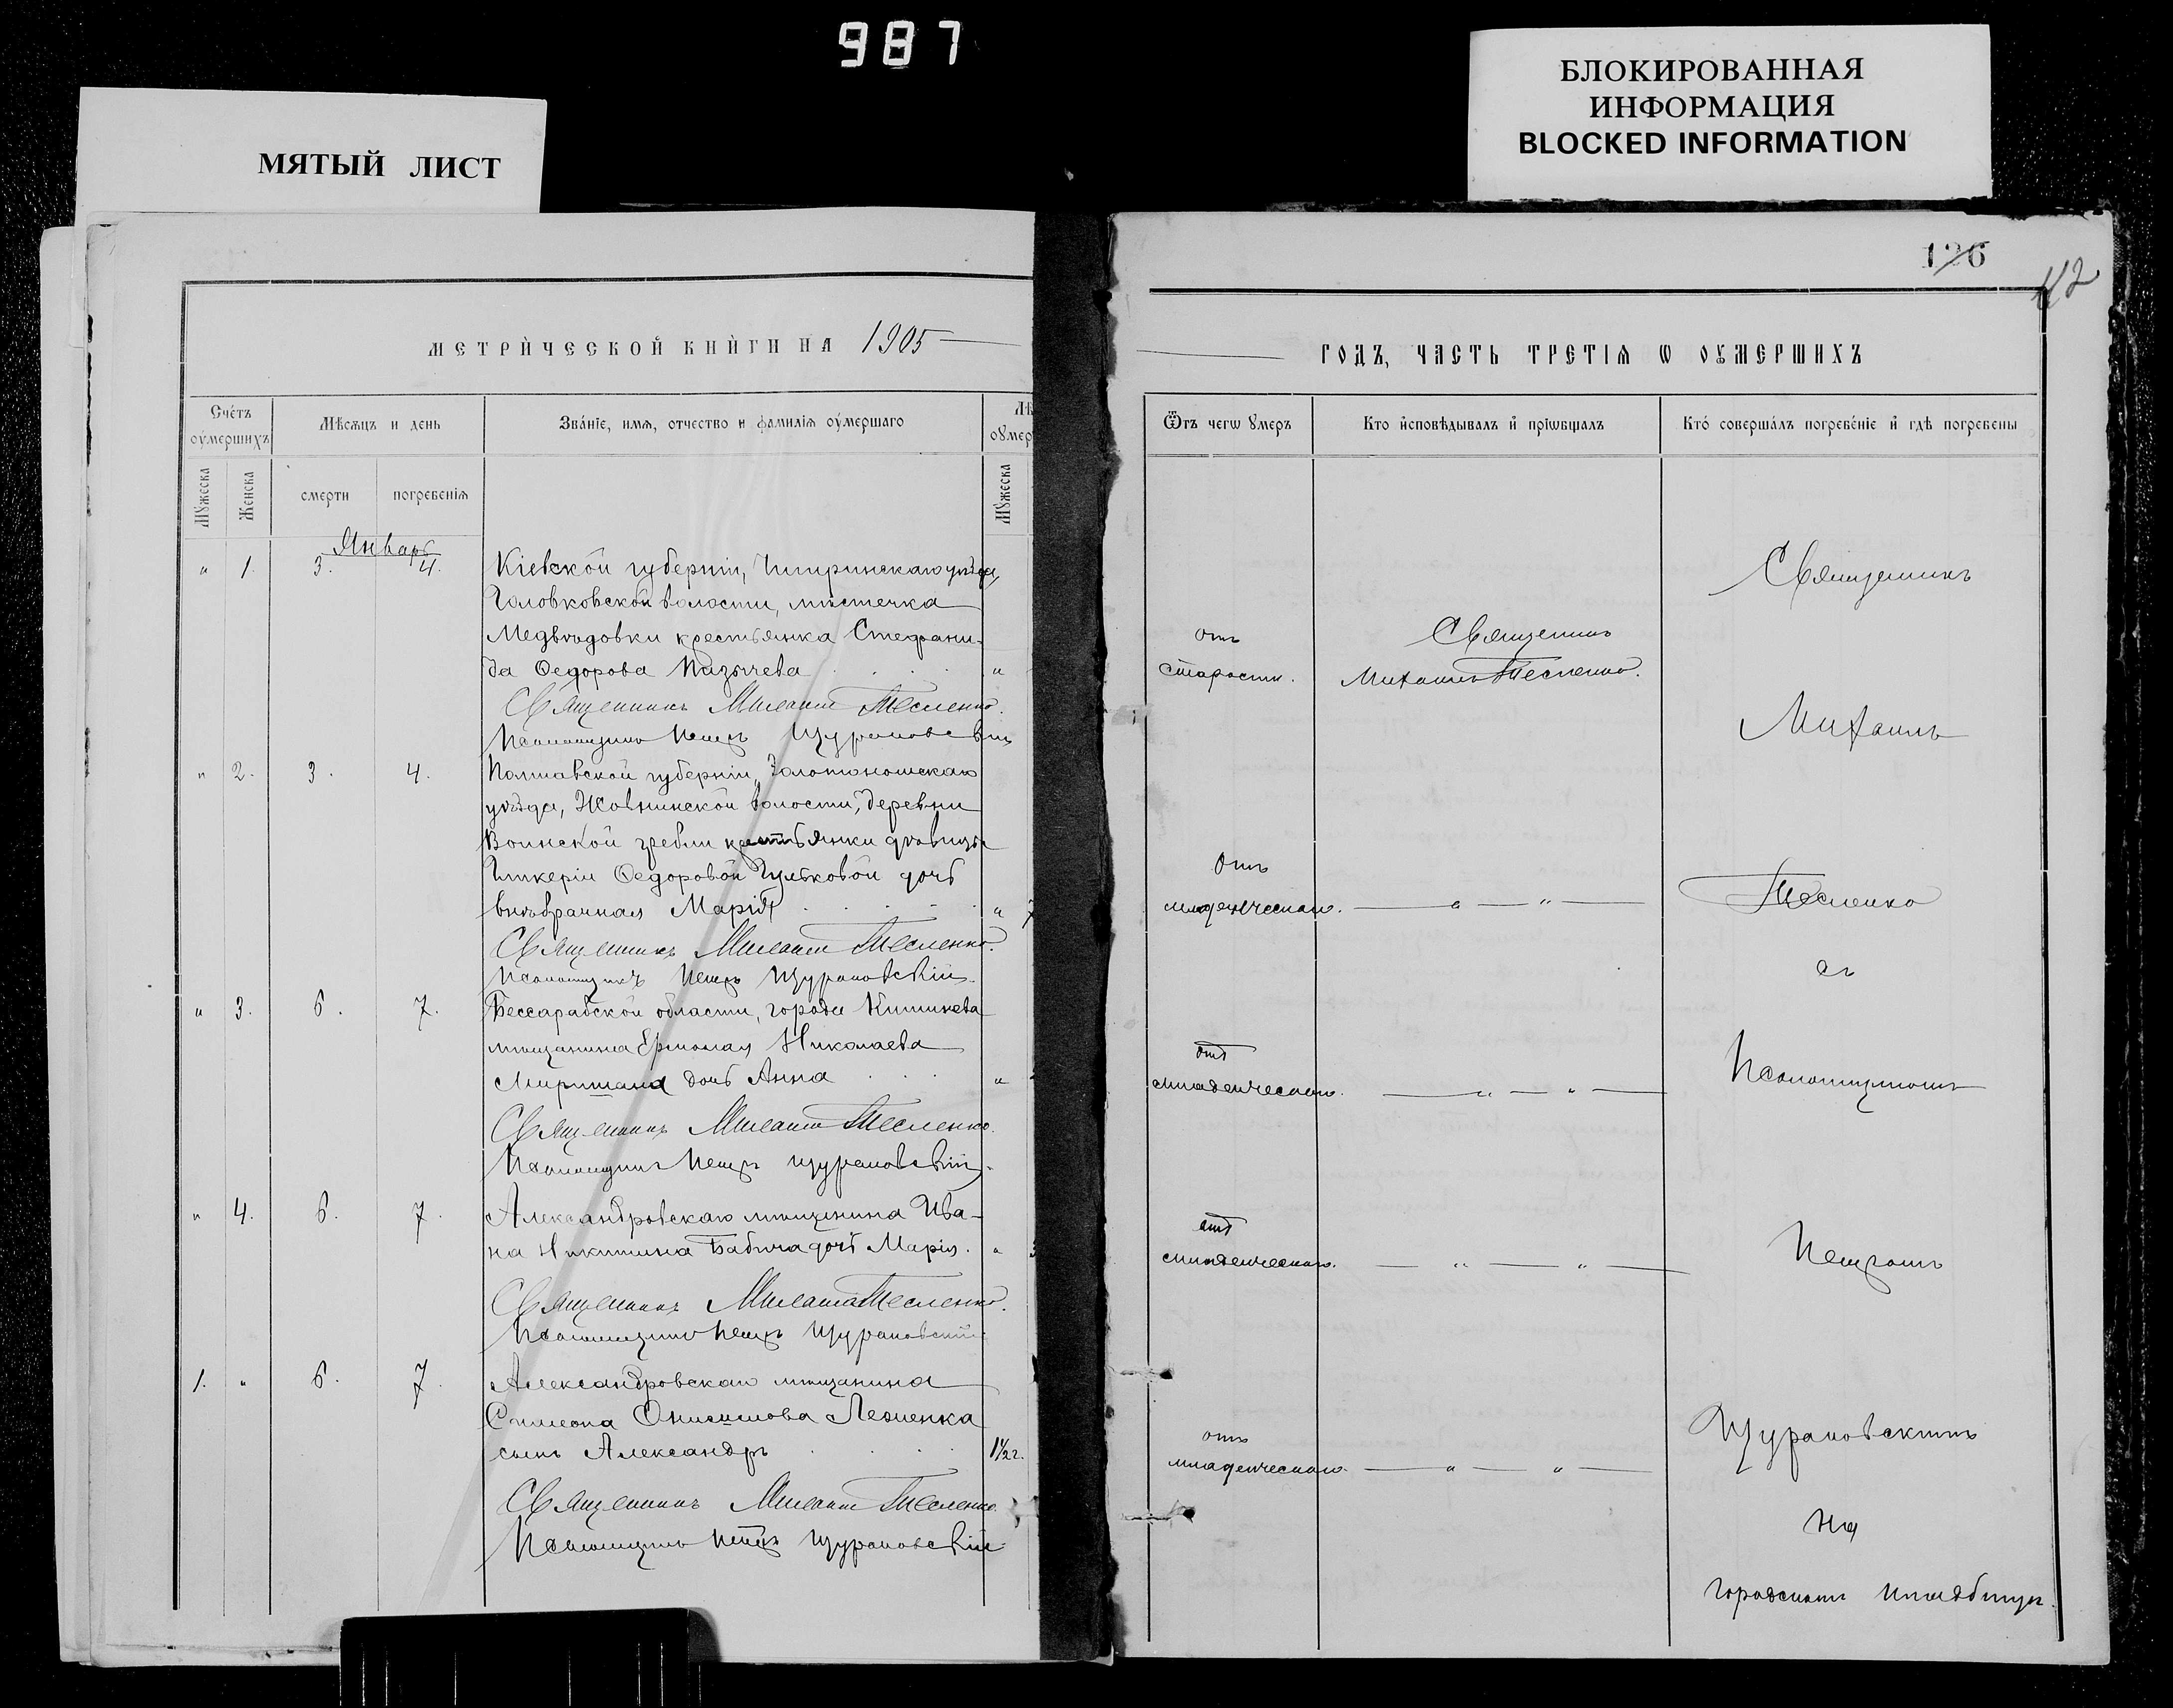 987
МЯТЫЙ ЛИСТ
БЛОКИРОВАННАЯ
ИНФОРМАЦИЯ
BLOCKED INFORMATION
126
112
МЕТРИЧЕСКОЙ КНИГИ НА 1905
Счетъ умершихъ
Мѣсяцъ и день
Званіе, имя, отчество и фамилія умершаго
Мужеска
Женска
смерти
погребенія
Мужеска
Январь
" 1. 3. 4. Кіевской губерніи, Чигринскаго уѣзда,
Головковской волости, мѣстечка
Медвѣдовки крестьянка Стефани-
да Ѳедорова Казычева "
Священникъ Михаилъ Тесленко.
Псаломщикъ Петръ Щурановскій
" 2. 3. 4. Полтавской губерніи, Золотоношскаго
уѣзда, Жовнинской волости, деревни
Воинской гребли крестьянки дѣвицы
Гликеріи Ѳедоровой Гульковой дочь
внѣбрачная Марія "
Священникъ Михаилъ Тесленко.
Псаломщикъ Петръ Щурановскій.
" 3. 6. 7. Бессарабской области, города Кишинева
мѣщанина Ермолая Николаева
дочь Анна "
Священникъ Михаилъ Тесленко.
Псаломщикъ Петръ Щурановскій.
" 4. 6. 7. Александровскаго мѣщанина Ива-
на Никитина Бабича дочь Марія. "
Священникъ Михаилъ Тесленко.
Псаломщикъ Петръ Щурановскій
1. " 6. 7. Александровскаго мѣщанина
Симеона Онисимова
сынъ Александръ 1½ г.
Священникъ Михаилъ Тесленко.
Псаломщикъ Петръ Щурановскій
ГОДЪ, ЧАСТЬ ТРЕТІЯ Ѡ ОУМЕРШИХЪ
Ѿтъ чегѡ умеръ
Кто исповѣдывалъ и пріѡбщалъ
Кто совершалъ погребеніе и гдѣ погребены
отъ
старости.
Священникъ
Михаилъ Тесленко.
Отъ
младенческаго. " "
отъ
младенческаго. " "
отъ
младенческаго. " "
отъ
младенческаго. " "
Священникъ
Михаилъ
Тесленко
съ
Псаломщикомъ
Петромъ
Щурановскимъ
на
городскомъ кладбищѣ.